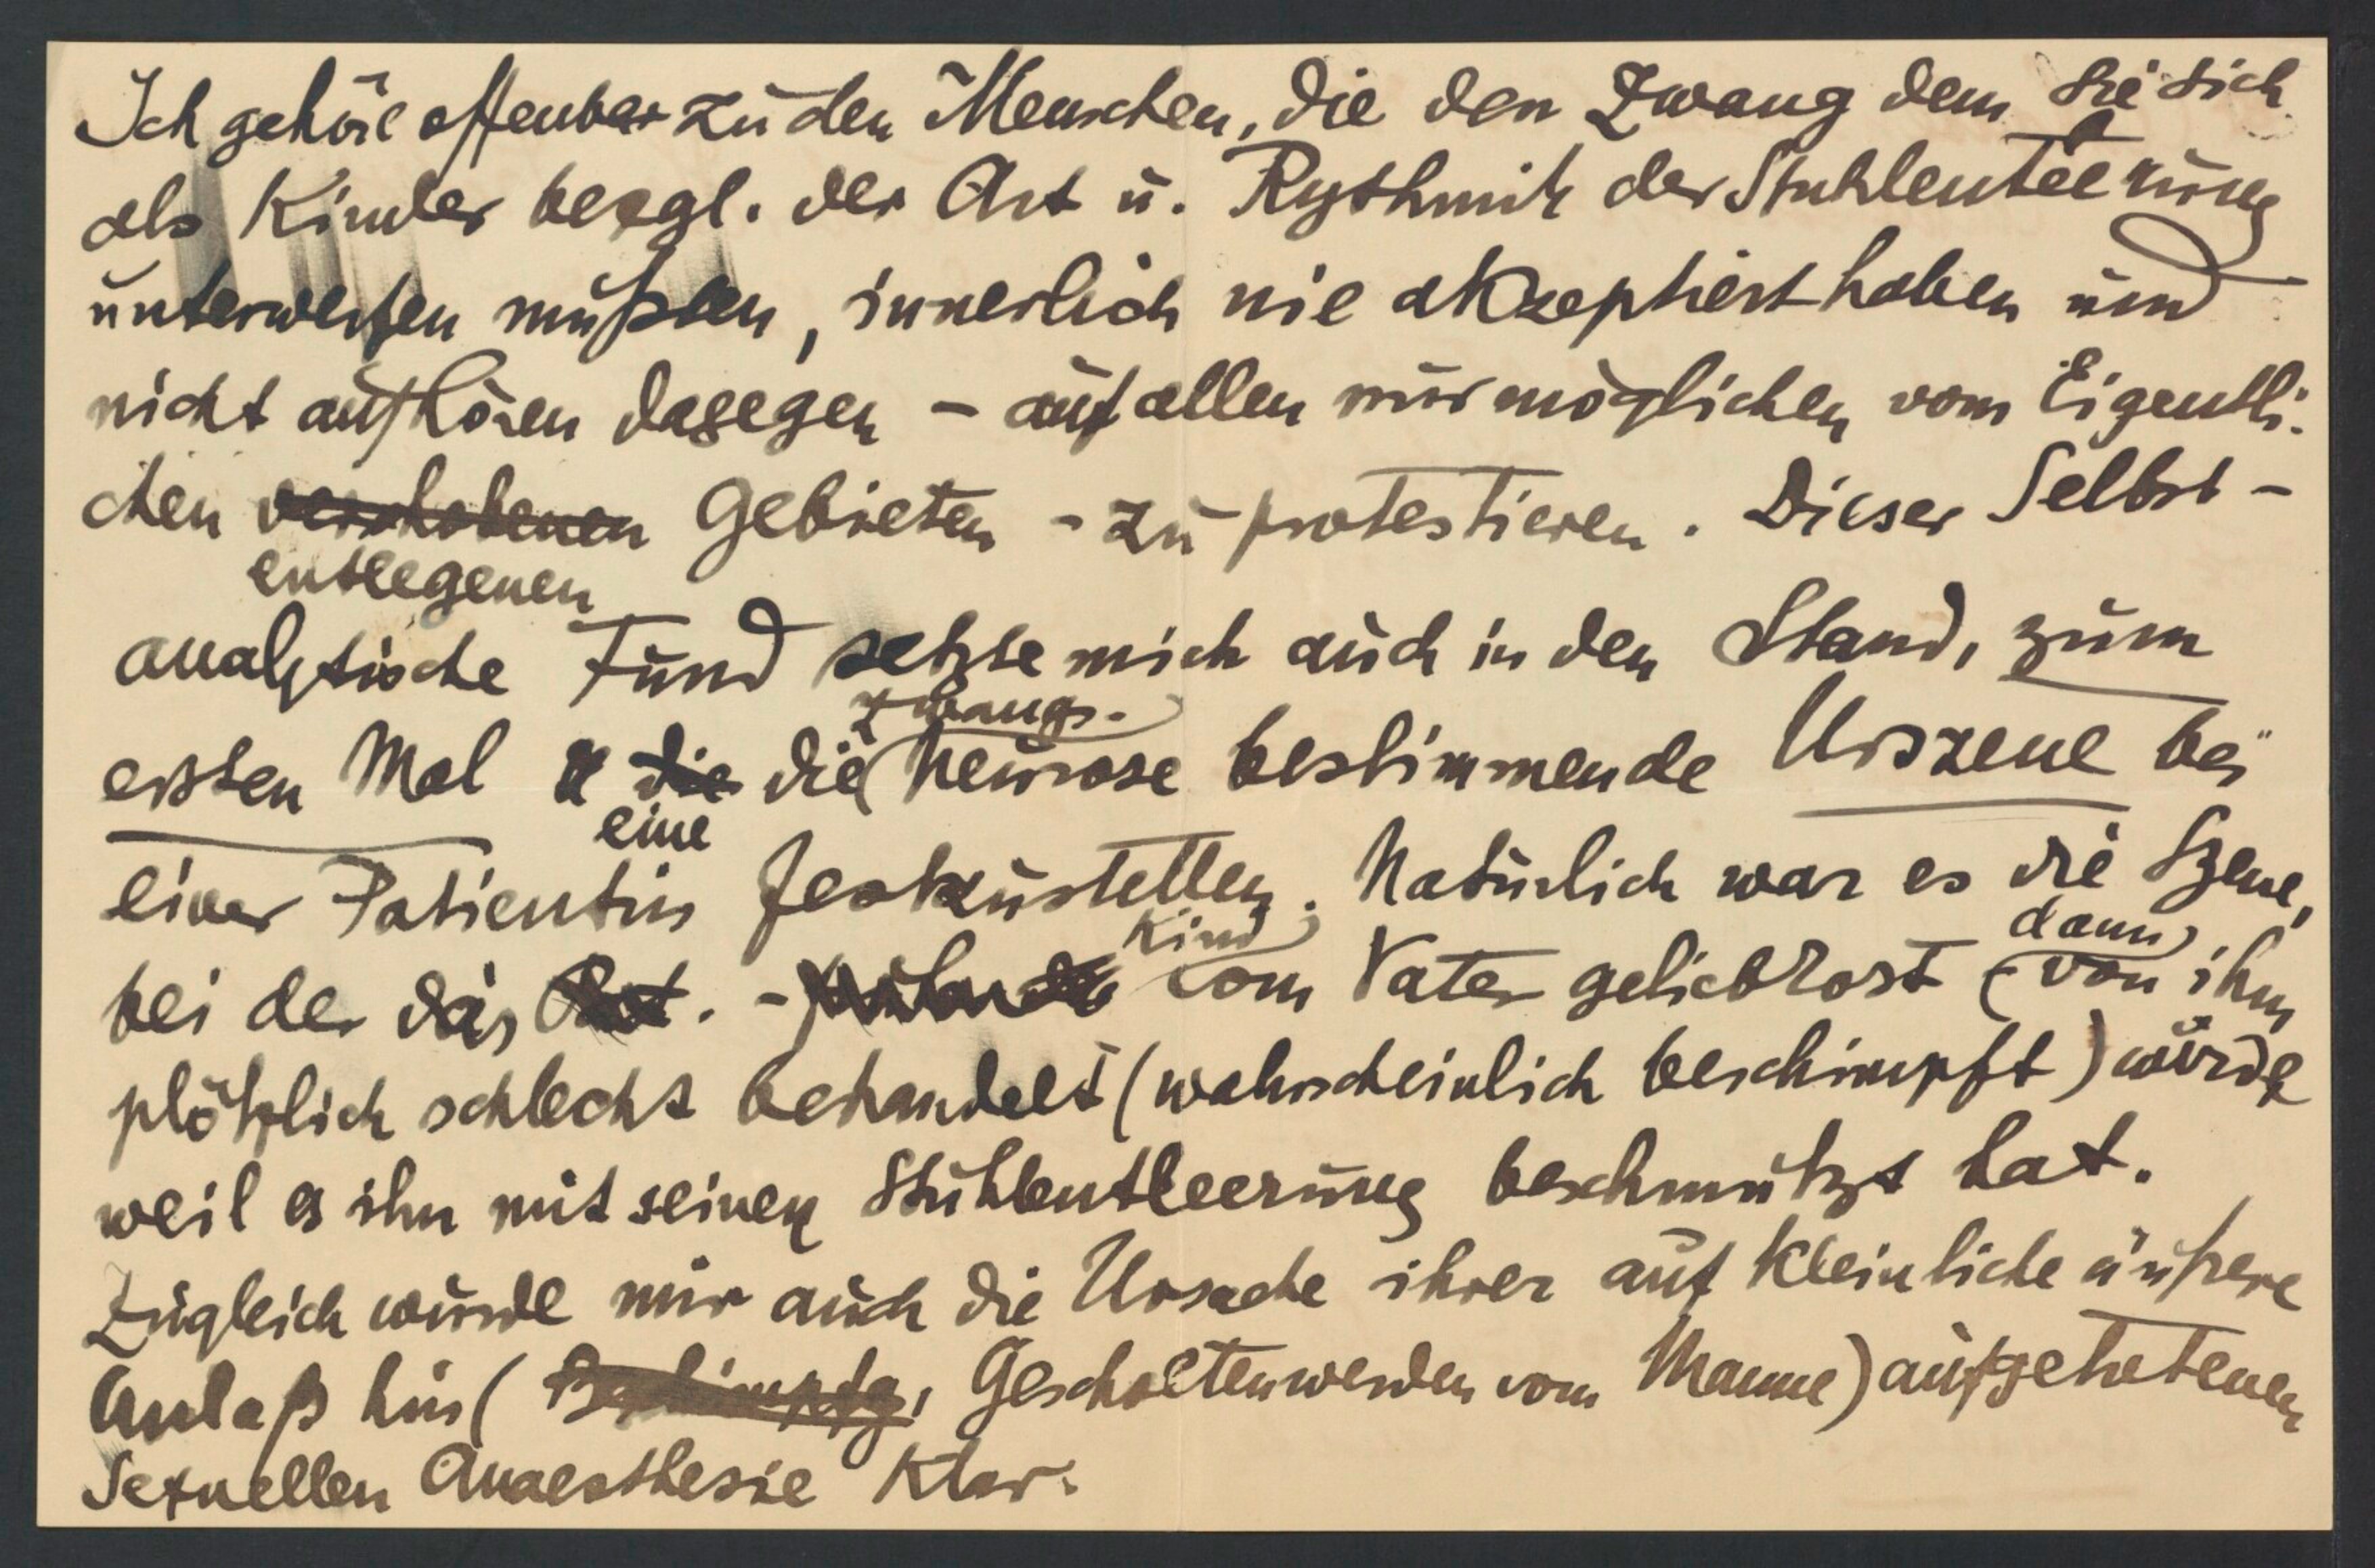 Ich gehöre offenbar zu den Menschen, die den Zwang dem sie sich
als Kinder bezgl. der Art u. Rythmik der Stuhlentleerung
unterwerfen mußten, innerlich nie akzeptiert haben und
nicht aufhören dagegen – auf allen nur möglichen vom Eigentli-
chen verschobenen Gebieten - zu protestieren. Dieser Selbst-
entlegenen
analytische Fund setzte mich auch in den Stand, zum
Zwangs-
ersten Mal die die Neurose bestimmende Urszene bei
eine
einer Patientin festzustellen. Natürlich war es die Szene,
Kind dann
bei der das Pat. - vom Vater geliebkost von ihm
plötzlich schlecht behandelt (wahrscheinlich beschimpft) wurde
weil es ihn mit seiner Stuhlentleerung beschmutzt hat.
Zugleich wurde mir auch die Ursache ihrer auf kleinliche äußere
Anlaß hin ( Beschimpfg, Gescholtenwerden vom Manne) aufgetretenen
Sexuellen Anaesthesie klar.